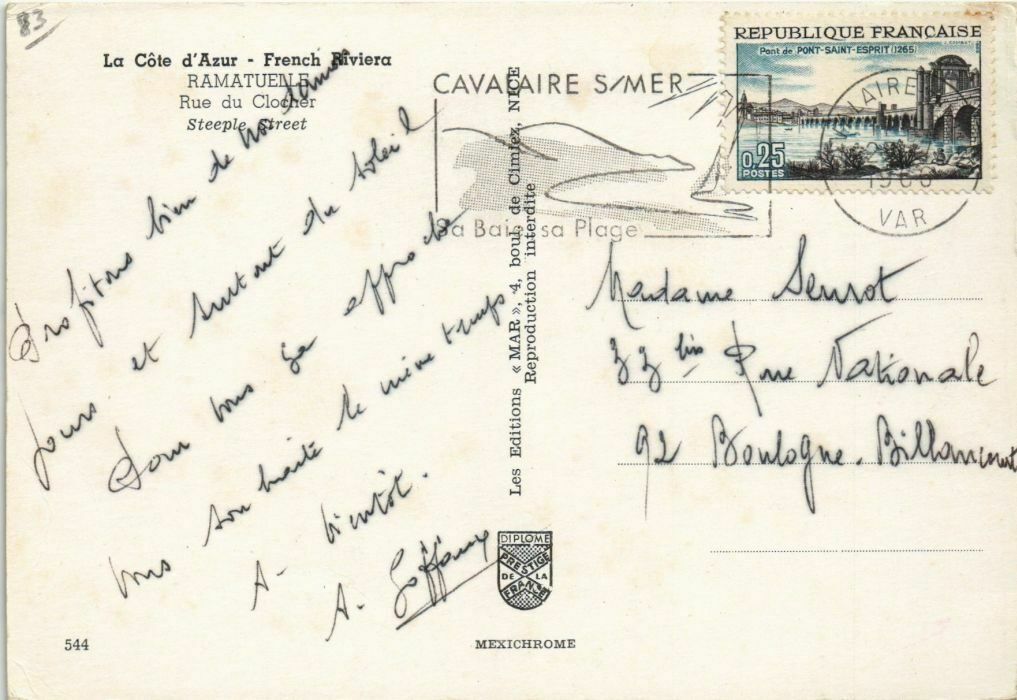 83
La Côte d'Azur - French Riviera
RAMATUELLE
Rue du Clocher
Steeple Street
Profitons bien de nos
jours et surtout du soleil
Pour vous ça approche
vous souhaite le même temps.
A bientôt.
A.
CAVALAIRE S/MER
Sa Baie sa Plage
REPUBLIQUE FRANÇAISE
Pont de PONT-SAINT-ESPRIT (1265)
0,25
POSTES
VAR
Les Editions « MAR », 4, boul. de Cimiez, NICE
Reproduction interdite
Madame
Rue Nationale
92 Boulogne-Billancourt
DIPLOME
PRESTIGE
DE LA
FRANCE
544
MEXICHROME